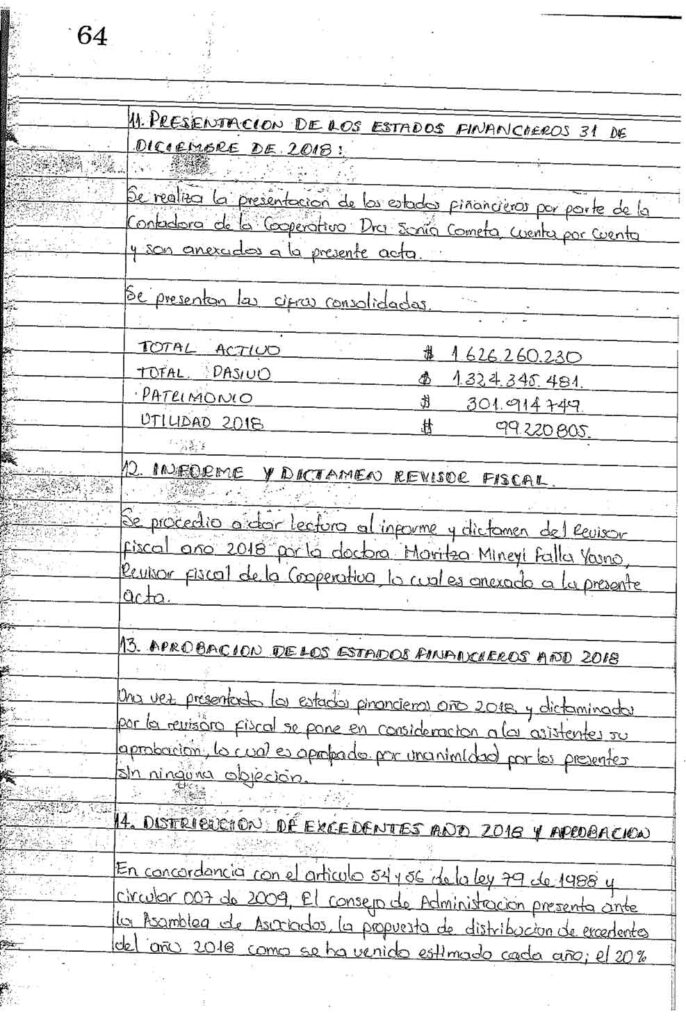 64
11. PRESENTACION DE LOS ESTADOS FINANCIEROS 31 DE
DICIEMBRE DE 2018:
Se realiza la presentacion de los estados financieros por parte de la
Contadora de la Cooperativa Dra Sonia Cometa, cuenta por cuenta
y son anexados a la presente acta.
Se presentan las cifras consolidadas.
TOTAL ACTIVO $ 1.626.260.230
TOTAL PASIVO $ 1.324.345.481.
PATRIMONIO $ 301.914.749.
UTILIDAD 2018 $ 99.220.805.
12. INFORME Y DICTAMEN REVISOR FISCAL.
Se procedio a dar lectura al informe y dictamen del Revisor
fiscal año 2018 por la doctora Maritza Mineyi Falla Yasno,
Revisor fiscal de la Cooperativa, lo cual es anexado a la presente
acta.
13. APROBACION DE LOS ESTADOS FINANCIEROS AÑO 2018
Una vez presentado los estados financieros año 2018 y dictaminados
por la revisora fiscal se pone en consideracion a los asistentes su
aprobación, lo cual es aprobado por unanimidad por los presentes
sin ninguna objeción.
14. DISTRIBUCION DE EXCEDENTES AÑO 2018 Y APROBACION
En concordancia con el articulo 54 y 56 de la ley 79 de 1988 y
circular 007 de 2009, El consejo de Administración presenta ante
la Asamblea de Asociados, la propuesta de distribucion de excedentes
del año 2018 como se ha venido estimado cada año; el 20%